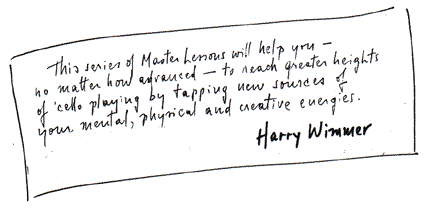 This series of Master Lessons will help you —
no matter how advanced — to reach greater heights
of 'cello playing by tapping new sources of
your mental, physical and creative energies.
Harry Wimmer